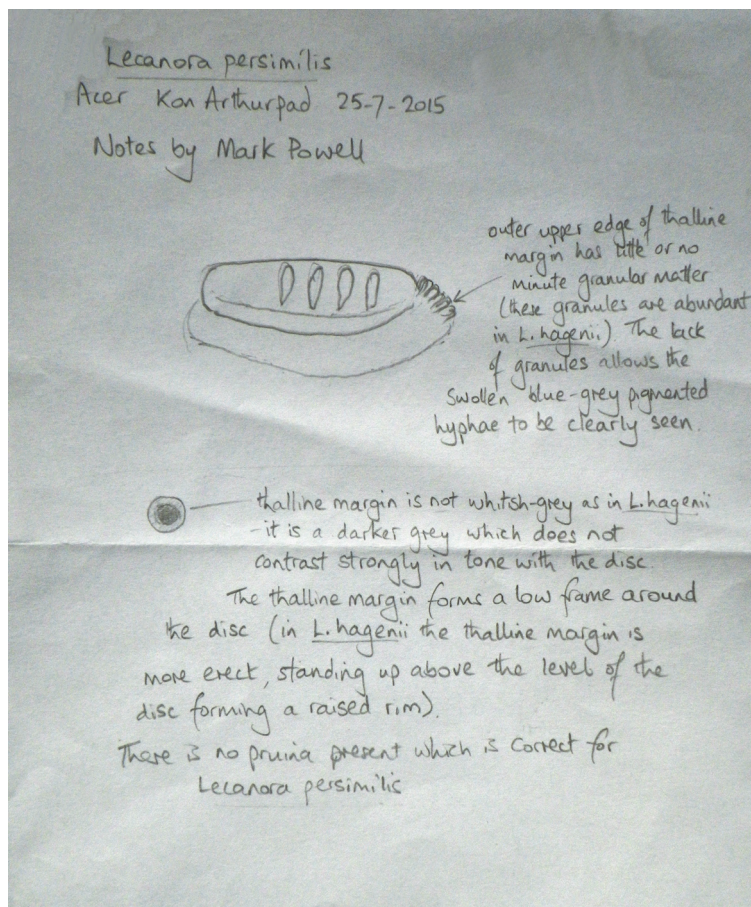 Lecanora persimilis
Acer Kon Arthurpad 25-7-2015
Notes by Mark Powell
outer upper edge of thalline
margin has little or no
minute granular matter
(these granules are abundant
in L. hagenii.) The lack
of granules allows the
swollen blue-grey pigmented
hyphae to be clearly seen.
thalline margin is not whitsh-grey as in L. hagenii
-it is a darker grey which does not
contrast strongly in tone with the disc.
The thalline margin forms a low frame around
the disc (in L. hagenii the thalline margin is
more erect, standing up above the level of the
disc forming a raised rim).
There is no pruina present which is correct for
Lecanora persimilis